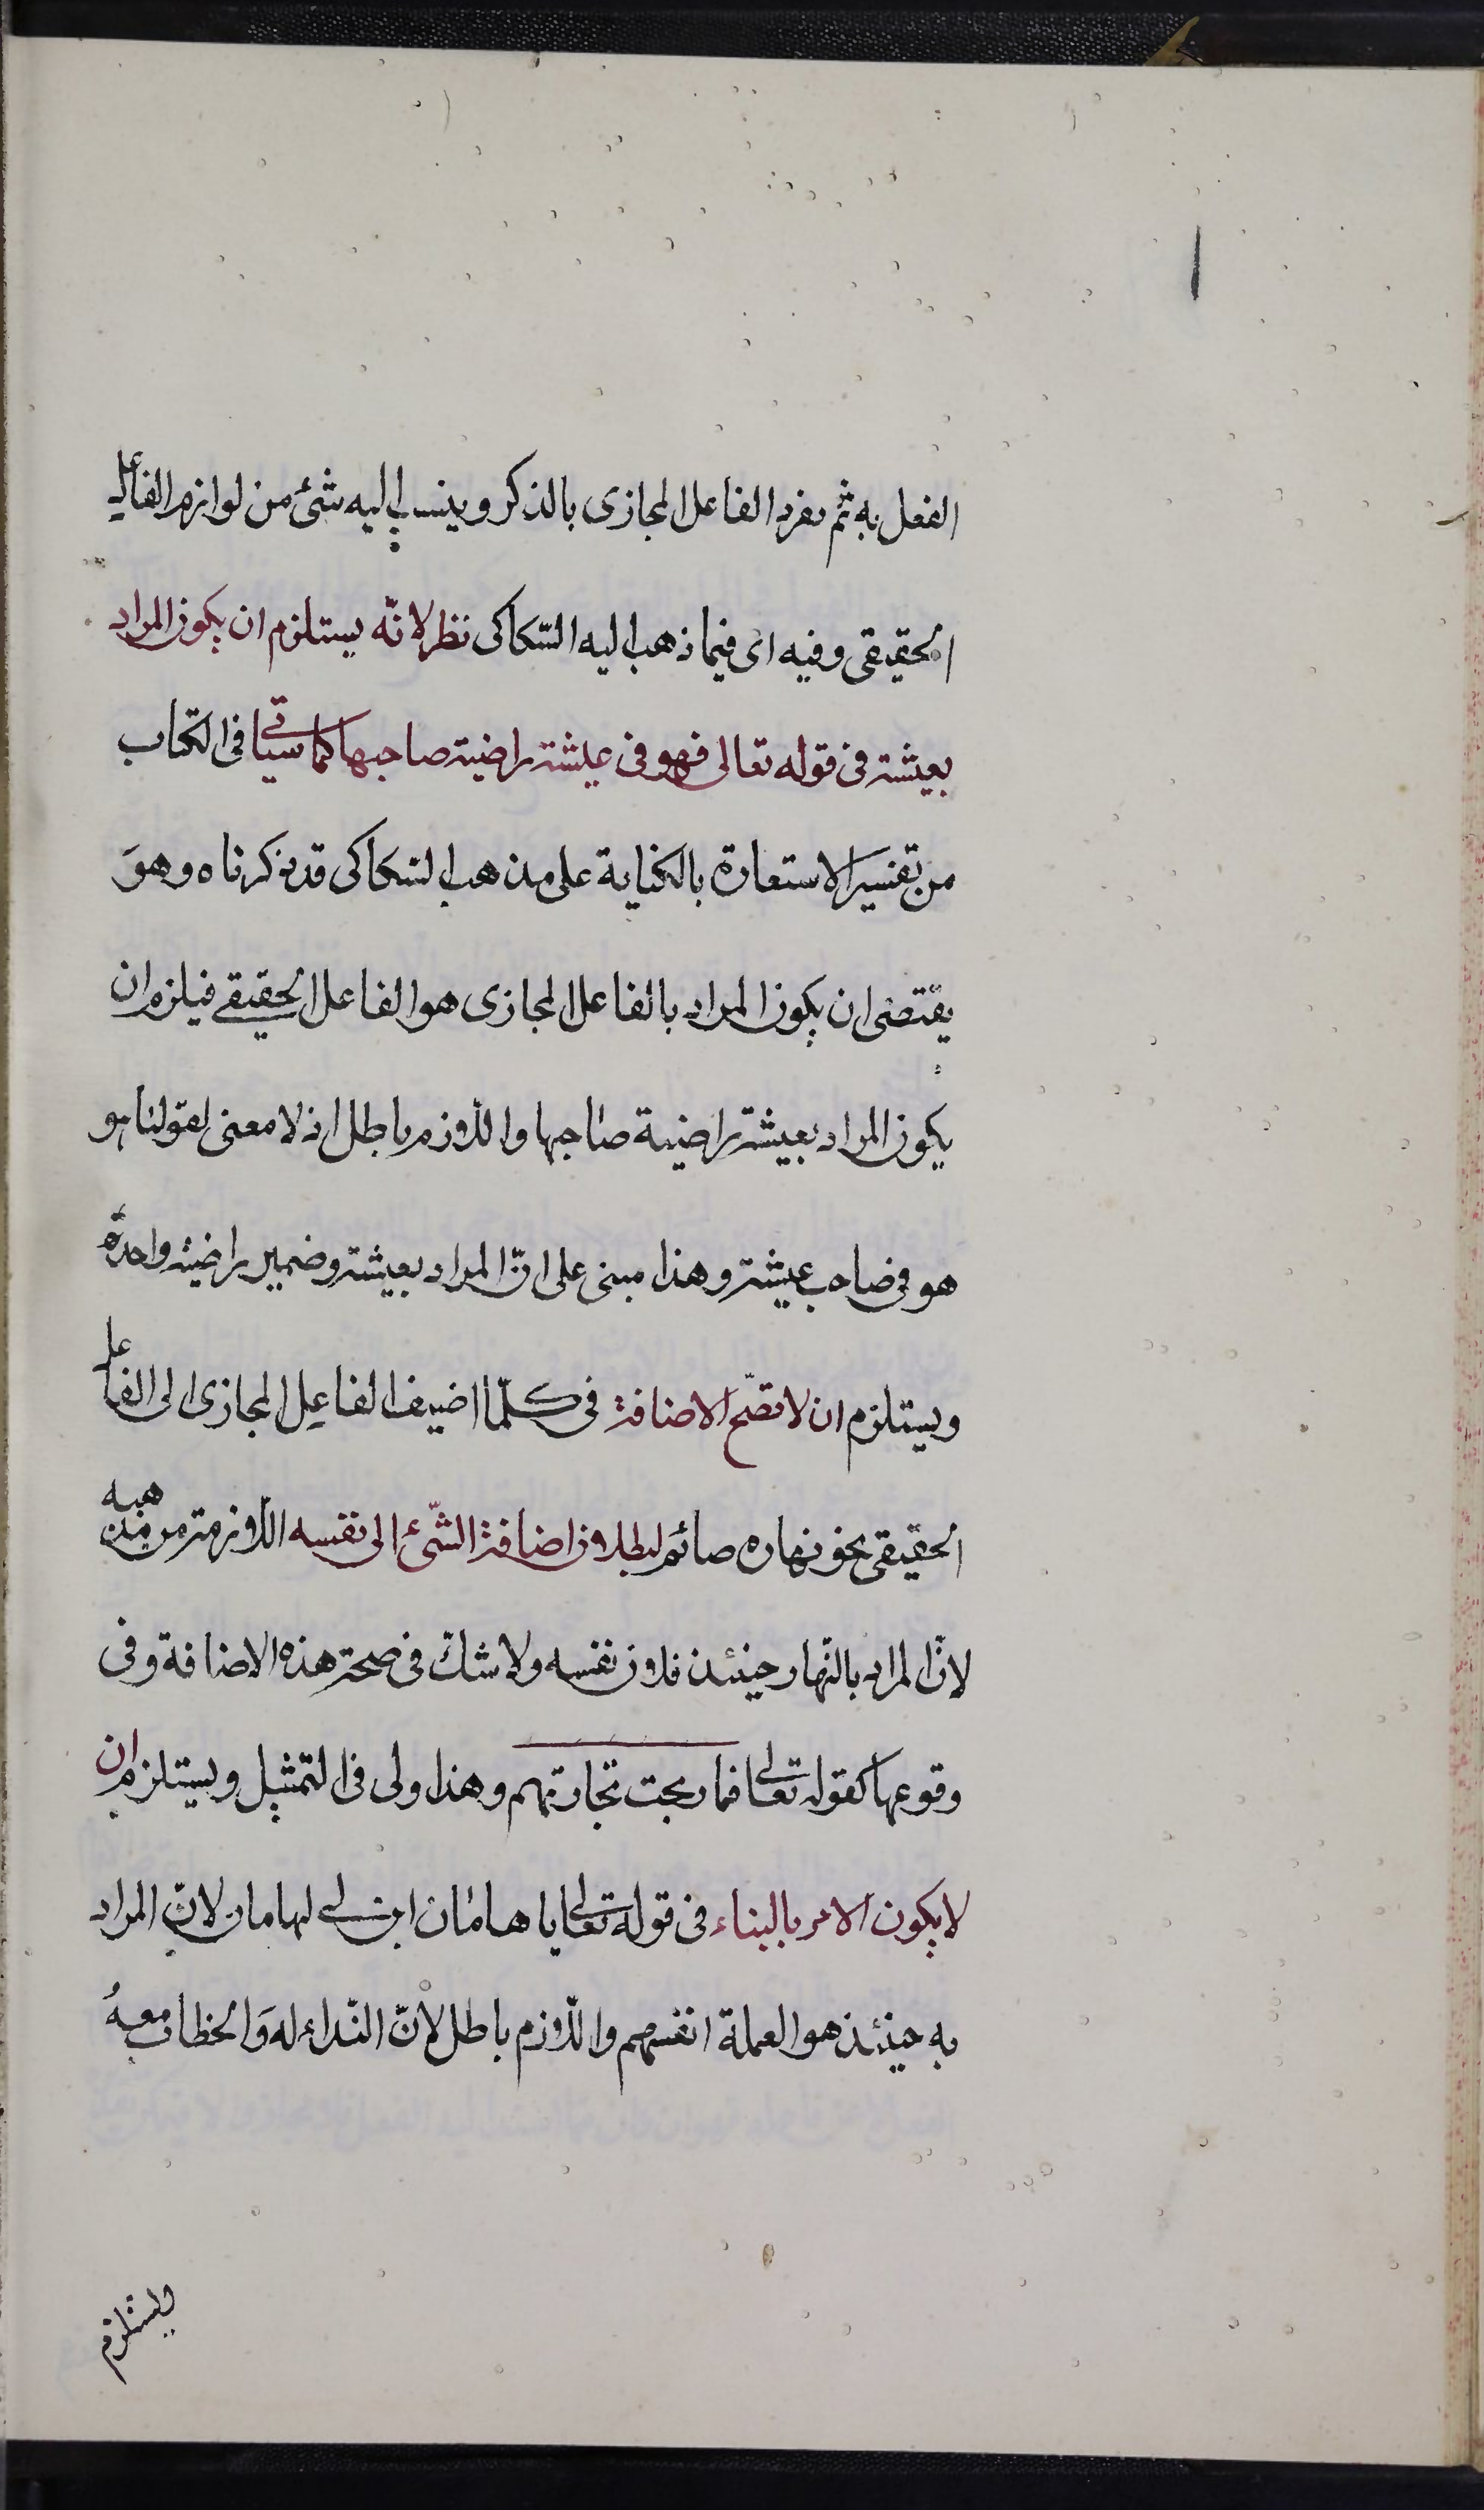 الفعل به ثم يفرد الفاعل المجازى بالذكر وينسب اليه شئ من لوازم الفاعل
الحقيقى وفيه اى فيما ذهب اليه السّكاكى نظر لانّه يستلزم ان يكون المراد
بعيشة فى قوله تعالى فهو فى عيشة راضية صاحبها كما سيأتى فى الكتاب
من تفسير الاستعارة بالكناية على مذهب السكاكى قد ذكرناه وهوَ
يقتضى ان يكون المراد بالفاعل المجازى هو الفاعل الحقيقى فيلزم ان
يكون المراد بعيشة راضية صاحبها واللّازم باطل اذ لا معنى لقولنا هو
هو فى صاحب عيشة وهذا مبنى على انّ المراد بعيشة وضمير راضية واحدة
ويستلزم ان لا تصّح الاضافة فى كلّما اضيف الفاعل المجازى الى الفاعل
الحقيقى نحو نهاره صائم لبطلان اضافة الشّئ الى نفسه اللّازمة من مذهبه
لانّ المراد بالنّهار حينئذ فلان نفسه ولا شكّ فى صحة هذه الاضافة وفى
وقوعها كقوله تعالى فما ربحت تجارتهم وهذا ولى فى التمثيل ويستلزم ان
لا يكون الامر بالبناء فى قوله تعالى يا هامان ابن لى لهامان لانّ المراد
به حينئذ هو العملة انفسهم واللّازم باطل لانّ النّداء له وَالخطاب معهُ
ويستلزم